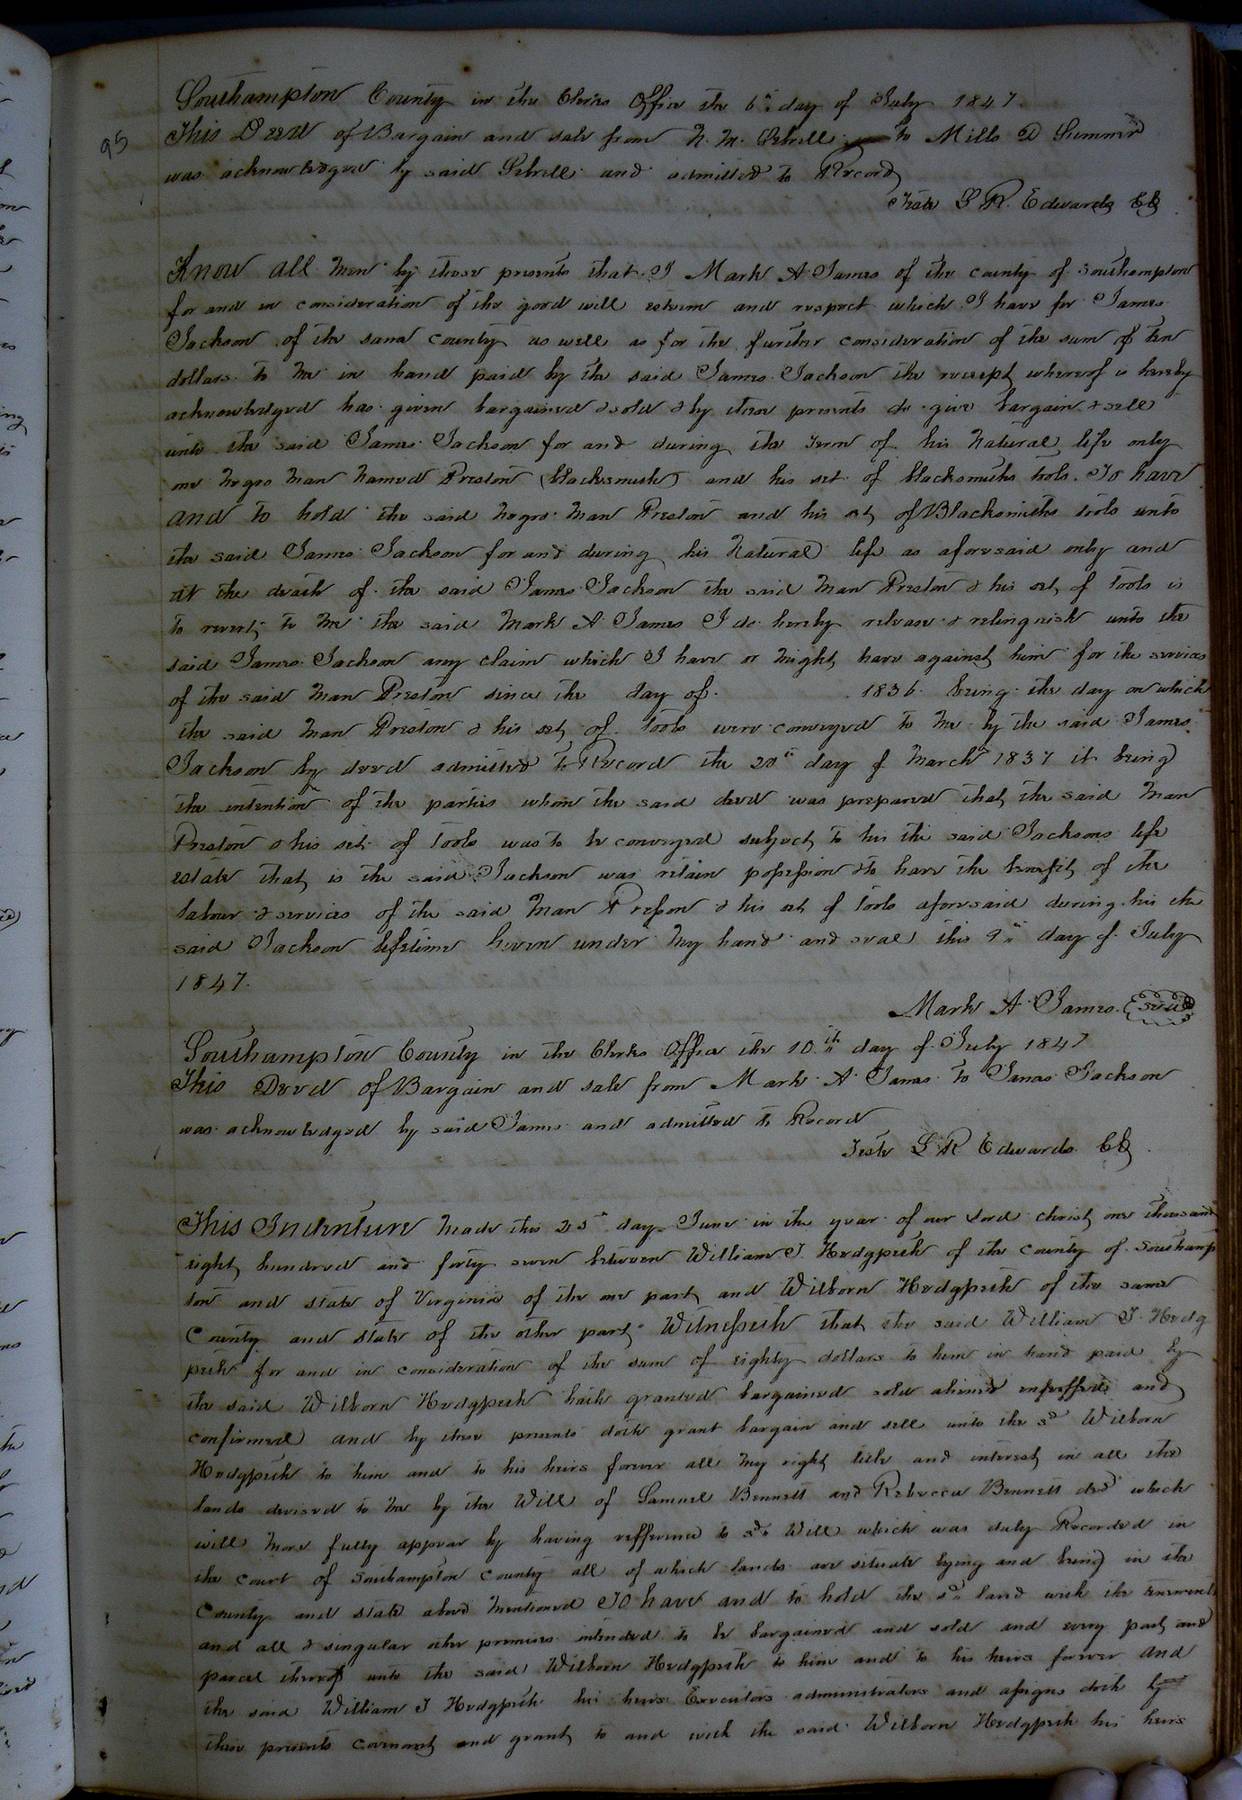 95
Southampton County in the Clerks Office the 6th day of July 1847.
This Deed of Bargain and sale from N. M. Sebrell to Mills D Summer
was acknowledged by said Sebrell and admitted to Record
Teste L R. Edwards CC
Know all Men by these presents that I Mark A James of the county of Southampton
for and in consideration of the good will esteem and respect which I have for James
Jackson of the same county as well as for the further consideration of the sum of ten
dollars to me in hand paid by the said James Jackson the receipt whereof is hereby
acknowledged has given bargained & sold & by these presents do give bargain & sell
unto the said James Jackson for and during the term of his Natural life only
one Negro Man Named Preston (blacksmith) and his set of blacksmiths tools. To have
and to hold the said Negro Man Preston and his set of Blacksmiths tools unto
the said James Jackson for and during his Natural life as aforesaid only and
at the death of the said James Jackson the said Man Preston & his set of tools is
to revert to me the said Mark A James I do hereby release & relinquish unto the
said James Jackson any claim which I have or might have against him for the services
of the said Man Preston since the day of 1836 being the day on which
the said Man Preston & his set of tools were conveyed to me by the said James
Jackson by deed admitted to Record the 20th day of March 1837 it being
the intention of the parties when the said deed was prepared that the said Man
Preston & his set of tools was to be conveyed subject to his the said Jacksons life
estate that is the said Jackson was retain possession & to have the benefit of the
labour & services of the said Man Preston & his set of tools aforesaid during his the
said Jackson lifetime Given under my hand and seal this 9th day of July
1847.
Mark A. James. seal
Southampton County in the Clerks Office the 10th day of July 1847
This Deed of Bargain and sale from Mark A. James to James Jackson
was acknowledged by said James and admitted to Record
Teste L R Edwards CC
This Indenture Made this 25th day June in the year of our Lord christ one thousand
eight hundred and forty seven between William J. Hedgpeth of the county of Southamp
ton and state of Virginia of the one part and Wilborn Hedgpeth of the same
County and state of the other part Witnesseth that the said William J Hedg
peth for and in consideration of the sum of eighty dollars to him in hand paid by
the said Wilborn Hedgpeth hath granted bargained sold aliened enfeffed and
confirmed and by these presents doth grant bargain and sell unto the sd Wilborn
Hedgpeth to him and to his heirs forever all my right title and interest in all the
lands devised to me by the Will of Samuel Bennett and Rebecca Bennett decd which
will more fully appear by having refference to sd Will which was duly Recorded in
the court of Southampton County all of which lands are situate lying and being in the
County and state above mentioned To have and to hold the sd land with the tenements
and all & singular other premises intended to be bargained and sold and every part and
parcel thereof unto the said Wilborn Hedgpeth to him and to his heirs forever and
the said William J Hedgpeth his heirs Executors administrators and assigns doth by
these presents covenant and grant to and with the said Wilborn Hedgpeth his heirs